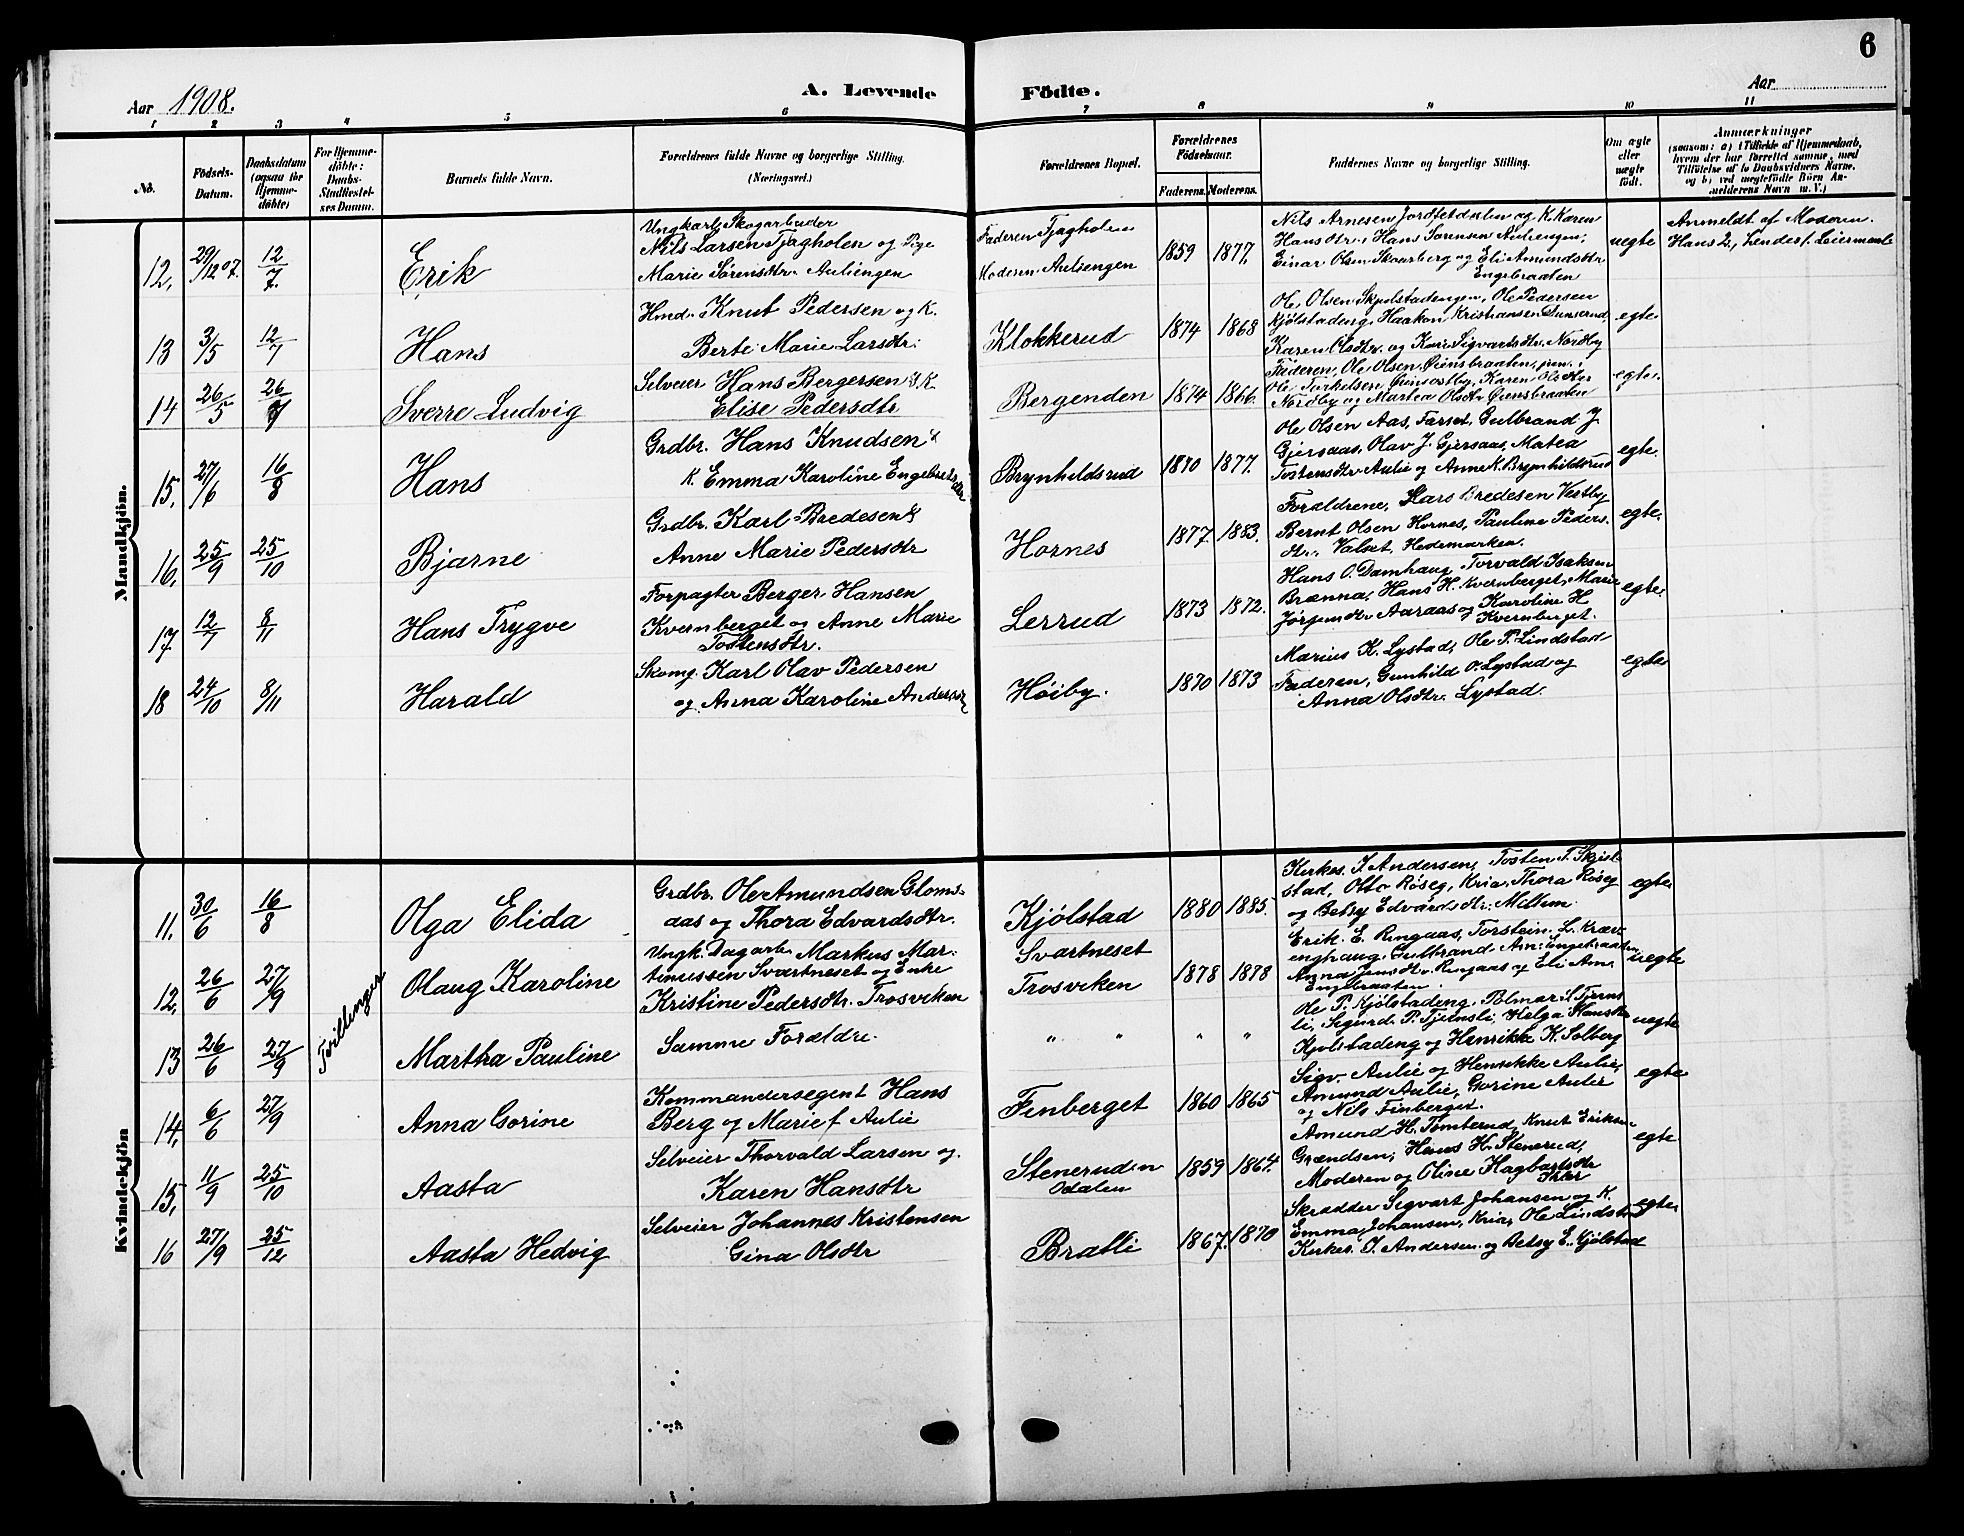 6
Aar 1908.
A. Levende Födte.
Aar
1 2 3 4 5 6 7 8 9 10 11
No.
Födsels-Datum.
Daabsdatum (ogsaa for Hjemmedöbte)
For Hjemmedöbte: Daabs-Stadfæstelses Datum.
Barnets fulde Navn.
Forældrenes fulde Navne og borgerlige Stilling.
(Næringsvei.)
Forældrenes Bopæl.
Forældrenes Födselsaar.
Faderens. Moderens.
Faddernes Navne og borgerlige Stilling.
Om ægte eller uægte födt.
Anmærkninger
(saasom: a) i Tilfælde af Hjemmedaab,
hvem der har forrettet samme, med
Tilföielse af to Daabsvidners Navne,
og b) ved uægtefödte Börn Anmelderens Navn m. V.)
Mandkjön.
12. 29/12 07. 12/7. Erik
Ungkarl Skogarbeider
Nils Larsen Tjagholen og Pige
Marie Sörensdtr. Auliengen
Faderen Tjagholen
Moderen Auliengen
1859 1877.
Nils Arnesen Jordfetdalen og K. Karen
Hansdtr., Hans Sørensen Auliengen,
Einar Olsen Skaarberg og Eli Amundsdtr
Engebraaten
uegte
Anmeldt af Moderen.
Hans 2, hendes f. Leiermaal
13 3/5 12/7 Hans
Hmd. Knut Pedersen og K.
Berte Marie Larsdtr.
Klokkerud 1874 1868
Ole Olsen Skjølstadengen, Ole Pedersen
Kjölstadeng, Haakon Kristiansen Sunserud,
Karen Olsdtr. og Kari Sigvartsdtr. Nordby
egte.
14 26/5 26/7 Sverre Ludvig
Selveier Hans Bergersen & K.
Elise Pedersdtr
Bergenden 1874 1866.
Faderen, Ole Olsen Øiensbraaten, jun.,
Ole Torkelsen Øiensostby, Karen Olsdtr
Nordby og Martea Olsdtr Øiensbraaten
egte.
15. 27/6 16/8 Hans
Grdbr. Hans Knudsen &
K. Emma Karoline Engebretsdtr
Brynhildsrud 1870 1877.
Ole Olsen Aas, Farset, Gulbrand J.
Gjersaas, Olav J. Gjersaas, Matea
Tostensdtr Aulie og Anne K. Brynhildsrud
egte.
16. 25/9 25/10 Bjarne
Grdbr. Karl Bredesen &
Anne Marie Pedersdtr
Hornes 1877. 1883.
Foraldrene, Lars Bredesen Vestby
Bernt Olsen Hornes, Pauline Peders-
dtr. Valset, Hedemarken.
egte.
17. 12/7 8/11 Hans Trygve
Forpagter Berger Hansen
Kvernberget og Anne Marie
Tostensdtr.
Lerrud 1873 1872.
Hans O. Damhaug, Torvald Isaksen
Brænna, Hans H. Kvernberget, Marie
Jørgensdtr Aaraas og Karoline H
Kvernberget.
egte.
18 24/10 8/11 Harald
Skomg. Karl Olav Pedersen
og Anna Karoline Andersen
Høiby. 1870 1873
Marius K. Lystad, Ole P. Lindstad
Faderen, Gunhild O. Lystad og
Anna Olsdtr. Lystad.
egte
Kvindekjön
11. 30/6 16/8 Olga Elida
Grdbr. Ole Amundsen Gloms-
aas og Thora Edvardsdtr.
Kjølstad 1880 1885.
Kirkes. I. Andersen, Tosten T. Skjøl-
stad, Otto Röseg, Kria, Thora Röseg
og Betsy Edvardsdtr. Mellem
egte
12. 26/6 27/9 Tvillinger Olaug Karoline
Ungk. Dagarb. Markus Mar-
tinussen Svartneset og Enke
Kristine Pedersdtr. Trosviken
Svartneset
Trosviken 1878 1878
Erik E. Ringaas, Torstein L. Kræv
enghaug, Gulbrand Am. Engebraaten,
Anna Jensdtr. Ringaas og Eli Am.
Engebraaten.
uegte
13 26/6 27/9 Martha Pauline
Samme Foraldre.
" " " "
Ole P. Kjölstadeng, Polmar S. Tjerns
li, Sigurd P. Tjernsli, Helga Hansdtr
Kjolstadeng og Henrikke K. Solberg
uegte
14. 6/6 27/9 Anna Gorine
Kommandersegent Hans
Berg og Marie f. Aulie
Finberget 1860 1865
Sigv. Aulie og Henrikke Aulie,
Amund Aulie, Gorine Aulie
og Nils Finberget.
egte
15. 11/9 25/10 Aasta
Selveier Thorvald Larsen og
Karen Hansdtr
Steneruden
Odalen 1859 1864.
Amund H. Tomterud, Knut Eriksen
Grændsen, Hans H. Stenerud,
Moderen og Oline Hagbartsdtr
egte
16 27/9 25/12 Aasta Hedvig
Selveier Johannes Kristensen
Gina Olsdtr
Bratli 1867. 1870
Skrædder Sigvart Johansen og K.
Emma Johansen, Kria, Ole Lindstad
Kirkes. I. Andersen og Betsy E. Kjölstad
egte